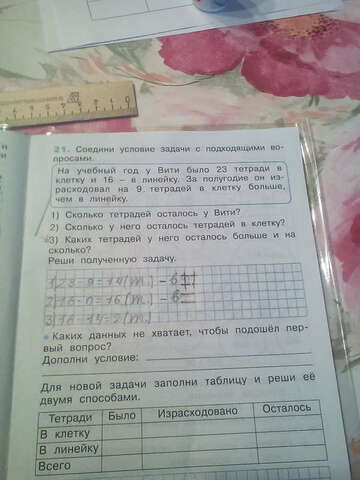 21. Соедини условие задачи с подходящими во-
просами.
На учебный год у Вити было 23 тетради в
клетку и 16 – в линейку. За полугодие он из-
расходовал на 9 тетрадей в клетку больше,
чем в линейку.
1) Сколько тетрадей осталось у Вити?
2) Сколько у него осталось тетрадей в клетку?
3) Каких тетрадей у него осталось больше и на
сколько?
Реши полученную задачу.
1) 23-9=14(т.)
2) 16-0=16(т.)
3) 16-14=2(т.)
Каких данных не хватает, чтобы подошёл пер-
вый вопрос?
Дополни условие:
Для новой задачи заполни таблицу и реши её
двумя способами.
Тетради Было Израсходовано Осталось
В клетку
В линейку
Всего